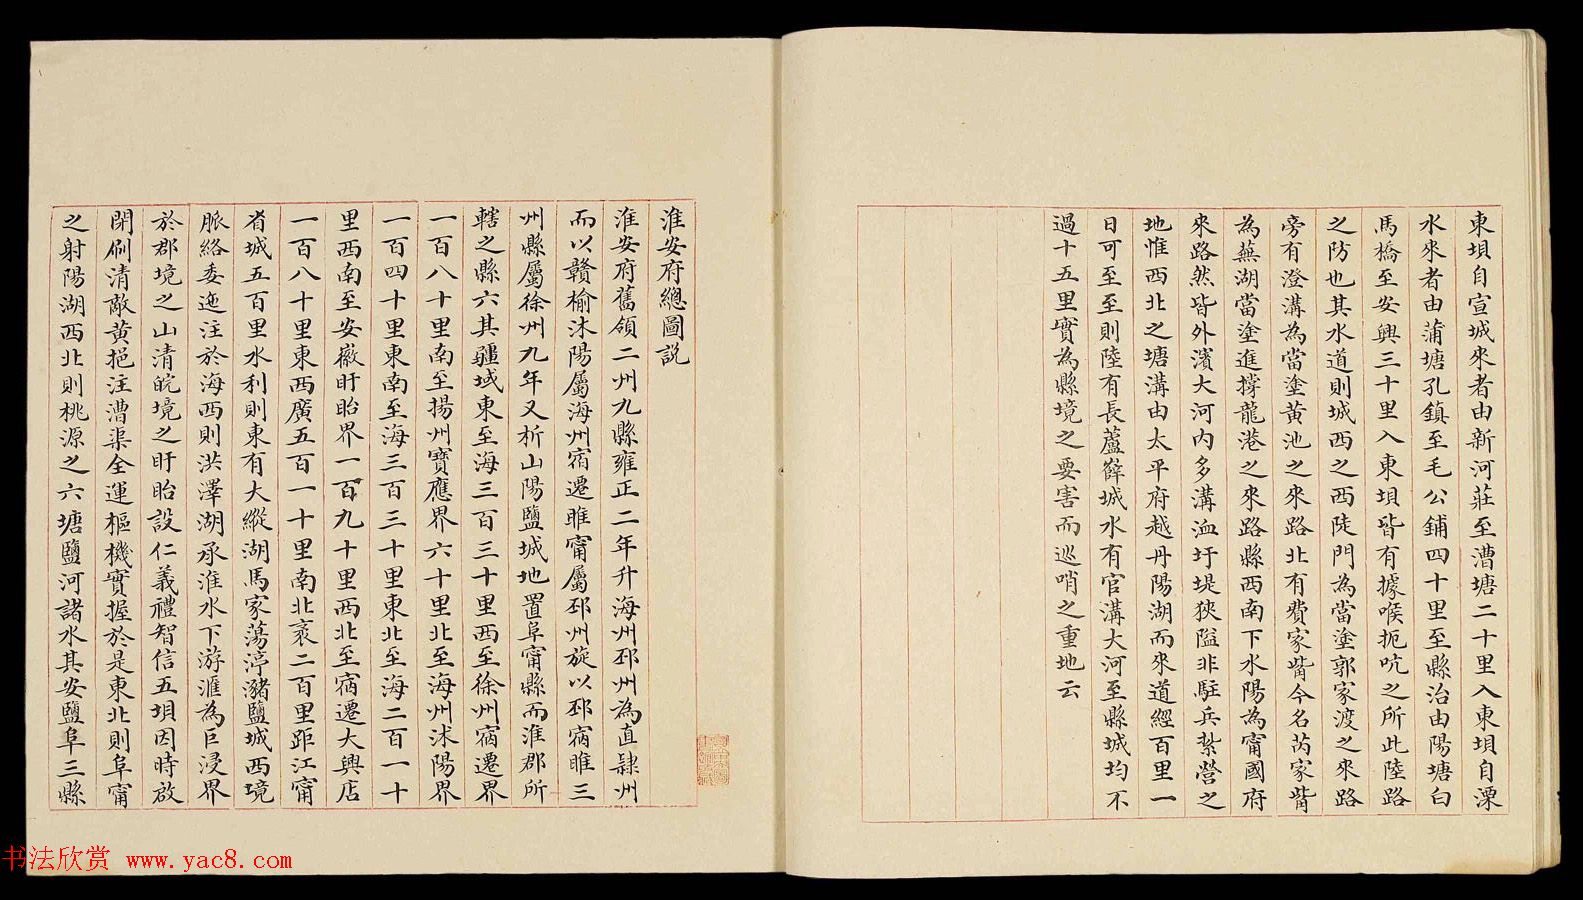 東埧自宣城來者由新河莊至漕塘二十里入東埧自溧
水來者由蒲塘孔鎮至毛公鋪四十里至縣治由陽塘白
馬橋至安興三十里入東埧皆有據喉扼吭之所此陸路
之防也其水道則城西之西陡門為當塗郭家渡之來路
旁有澄溝為當塗黃池之來路北有費家嘴今名芮家嘴
為蕪湖當塗進撐龍港之來路縣西南下水陽為甯國府
來路然皆外濱大河內多溝洫圩堤狹隘非駐兵紮營之
地惟西北之塘溝由太平府越丹陽湖而來道經百里一
日可至至則陸有長蘆薛城水有官溝大河至縣城均不
過十五里實為縣境之要害而巡哨之重地云
淮安府總圖説
淮安府舊領二州九縣雍正二年升海州邳州為直隸州
而以贛榆沭陽屬海州宿遷睢甯屬邳州旋以邳宿睢三
州縣屬徐州九年又析山陽鹽城地置阜甯縣而淮郡所
轄之縣六其疆域東至海三百三十里西至徐州宿遷界
一百八十里南至揚州寶應界六十里北至海州沭陽界
一百四十里東南至海三百三十里東北至海二百一十
里西南至安徽盱眙界一百九十里西北至宿遷大興店
一百八十里東西廣五百一十里南北袤二百里距江甯
省城五百里水利則東有大縱湖馬家蕩渟瀦鹽城西境
脈絡委迤注於海西則洪澤湖承淮水下游滙為巨浸界
於郡境之山清皖境之盱眙設仁義禮智信五埧因時啟
閉刷清敵黃挹注漕渠全運樞機實握於是東北則阜甯
之射陽湖西北則桃源之六塘鹽河諸水其安鹽阜三縣
书法欣赏 www.yac8.com